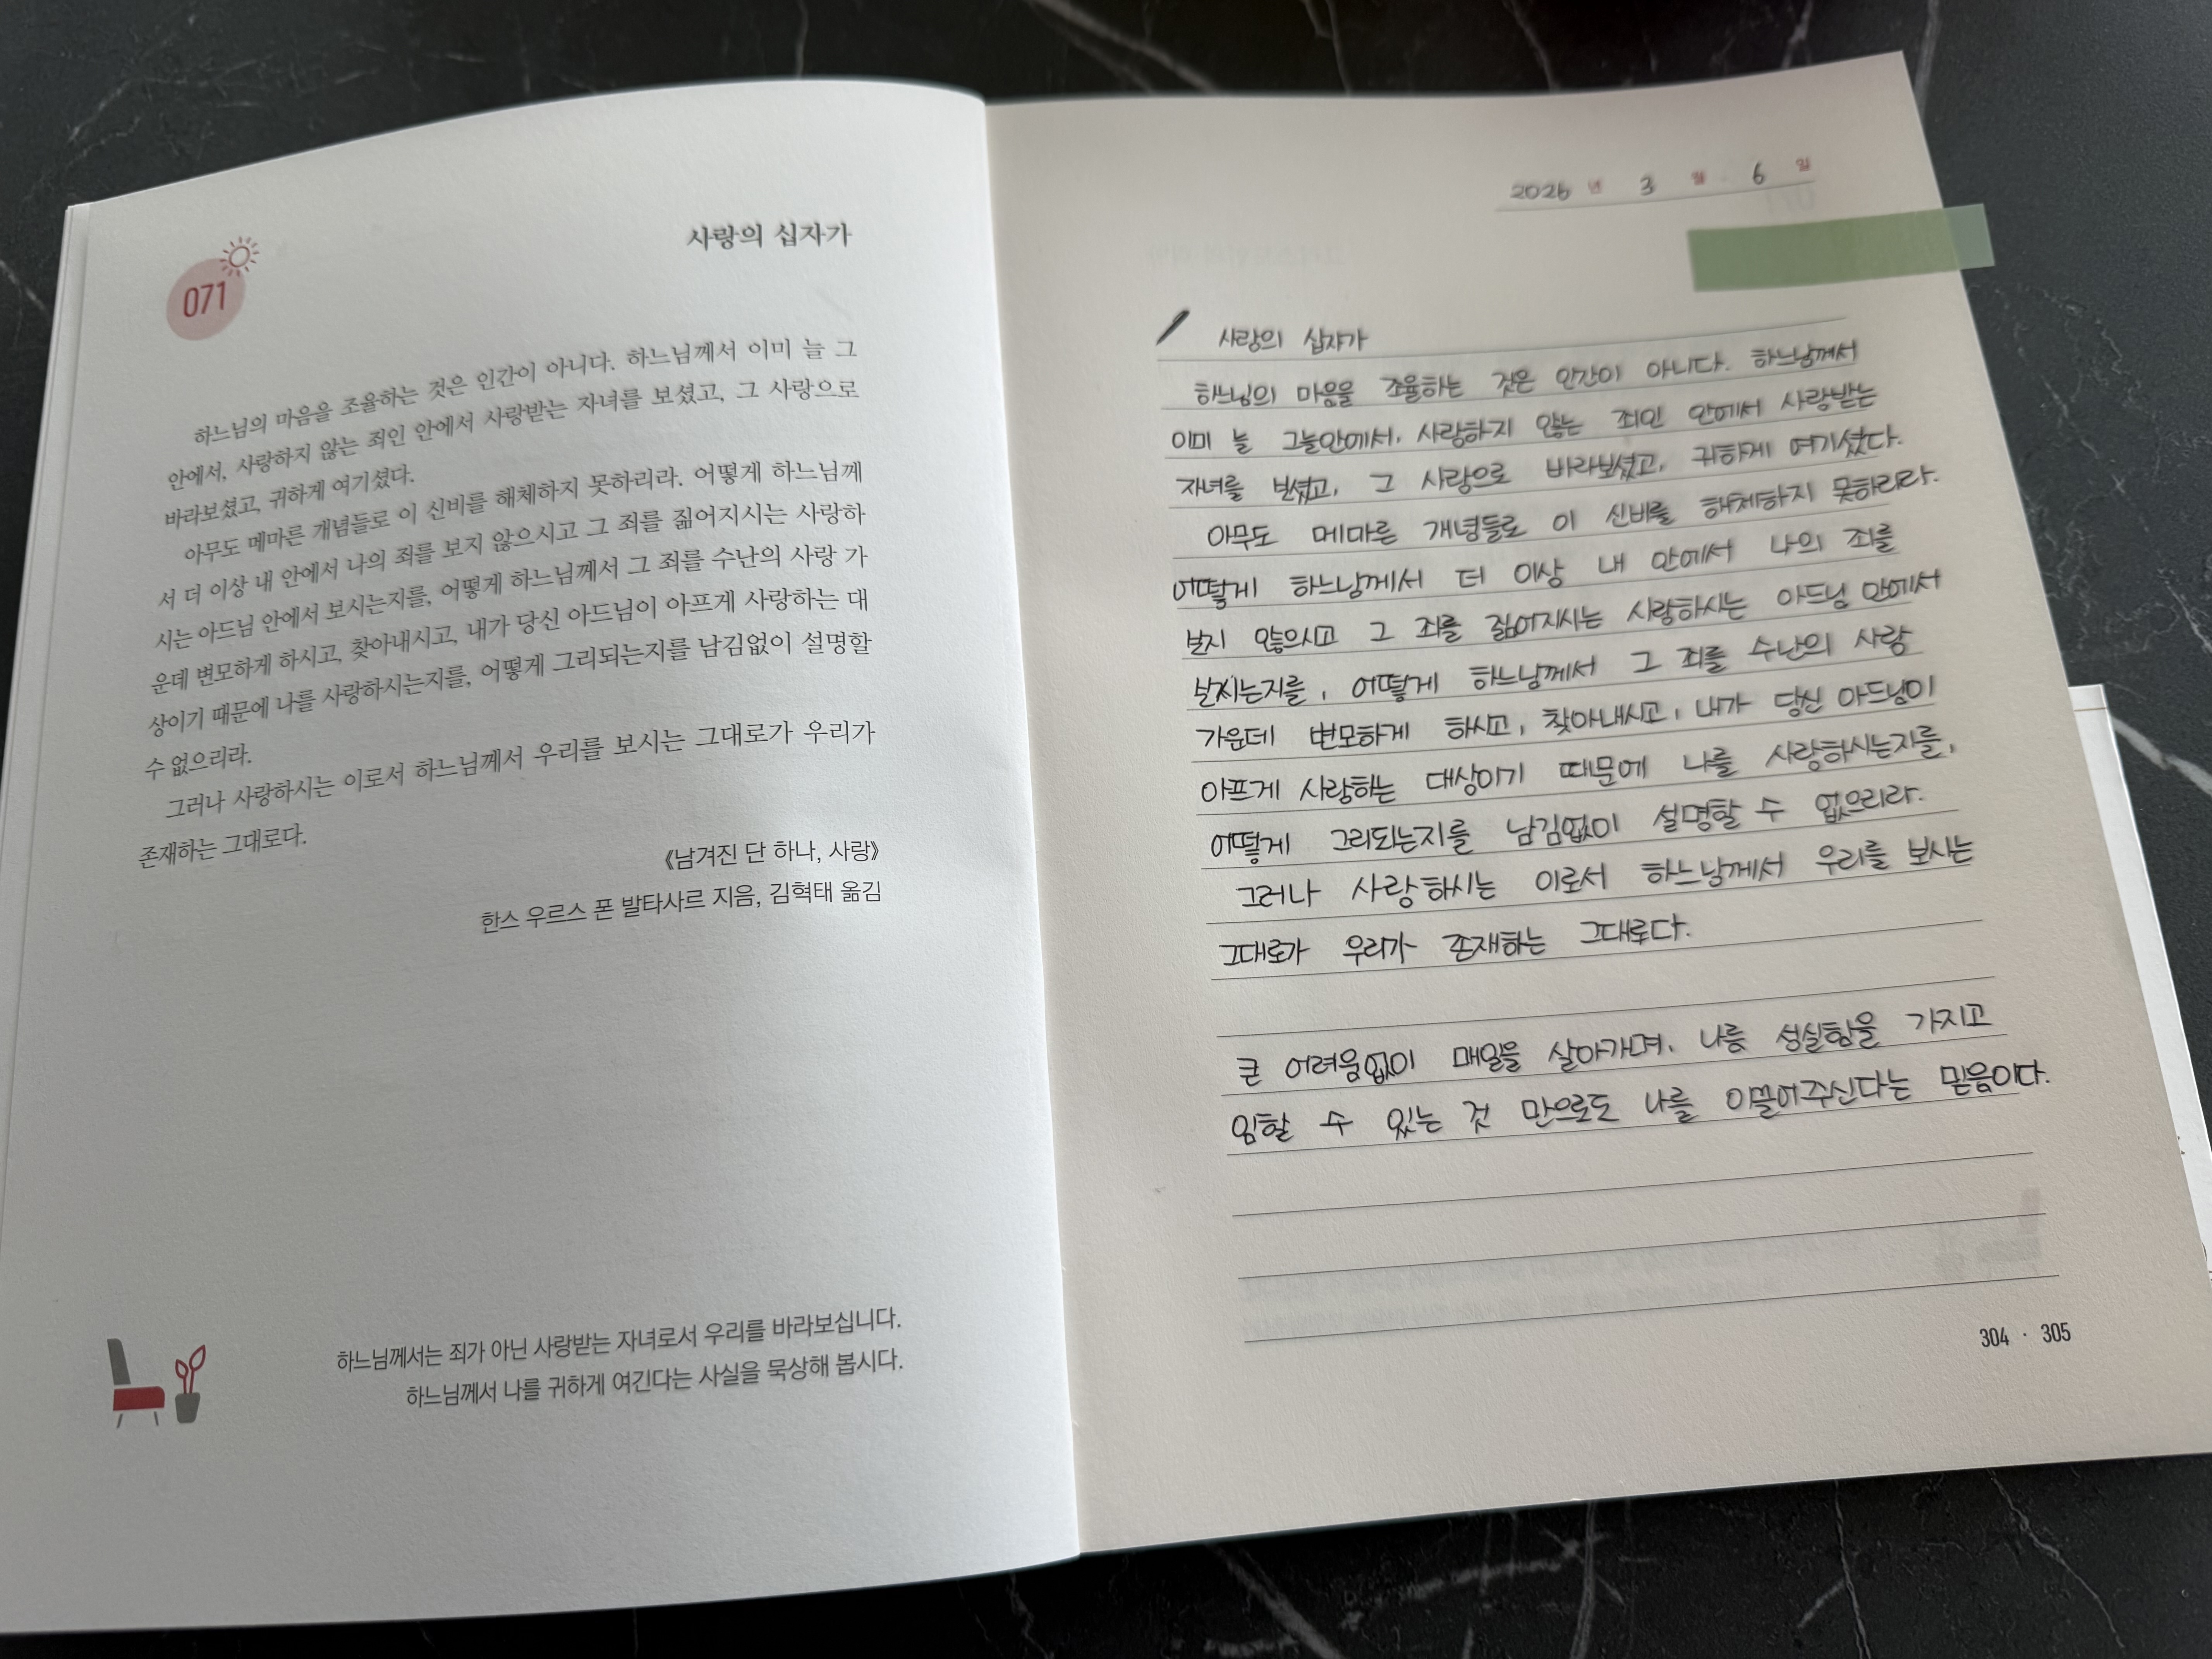 071
사랑의 십자가
하느님의 마음을 조율하는 것은 인간이 아니다. 하느님께서 이미 늘 그
안에서, 사랑하지 않는 죄인 안에서 사랑받는 자녀를 보셨고, 그 사랑으로
바라보셨고, 귀하게 여기셨다.
아무도 메마른 개념들로 이 신비를 해체하지 못하리라. 어떻게 하느님께
서 더 이상 내 안에서 나의 죄를 보지 않으시고 그 죄를 짊어지시는 사랑하
시는 아드님 안에서 보시는지를, 어떻게 하느님께서 그 죄를 수난의 사랑 가
운데 변모하게 하시고, 찾아내시고, 내가 당신 아드님이 아프게 사랑하는 대
상이기 때문에 나를 사랑하시는지를, 어떻게 그리되는지를 남김없이 설명할
수 없으리라.
그러나 사랑하시는 이로서 하느님께서 우리를 보시는 그대로가 우리가
존재하는 그대로다.
《남겨진 단 하나, 사랑》
한스 우르스 폰 발타사르 지음, 김혁태 옮김
하느님께서는 죄가 아닌 사랑받는 자녀로서 우리를 바라보십니다.
하느님께서 나를 귀하게 여긴다는 사실을 묵상해 봅시다.
2026 년 3 월 6 일
사랑의 십자가
하느님의 마음을 조율하는 것은 인간이 아니다. 하느님께서
이미 늘 그늘안에서, 사랑하지 않는 죄인 안에서 사랑받는
자녀를 보셨고, 그 사랑으로 바라보셨고, 귀하게 여기셨다.
아무도 메마른 개념들로 이 신비를 해체하지 못하리라.
어떻게 하느님께서 더 이상 내 안에서 나의 죄를
보지 않으시고 그 죄를 짊어지시는 사랑하시는 아드님 안에서
보시는지를, 어떻게 하느님께서 그 죄를 수난의 사랑
가운데 변모하게 하시고, 찾아내시고, 내가 당신 아드님이
아프게 사랑하는 대상이기 때문에 나를 사랑하시는지를,
어떻게 그리되는지를 남김없이 설명할 수 없으리라.
그러나 사랑하시는 이로서 하느님께서 우리를 보시는
그대로가 우리가 존재하는 그대로다.
큰 어려움없이 매일을 살아가며, 나름 성실함을 가지고
임할 수 있는 것 만으로도 나를 이끌어주신다는 믿음이다.
304 · 305